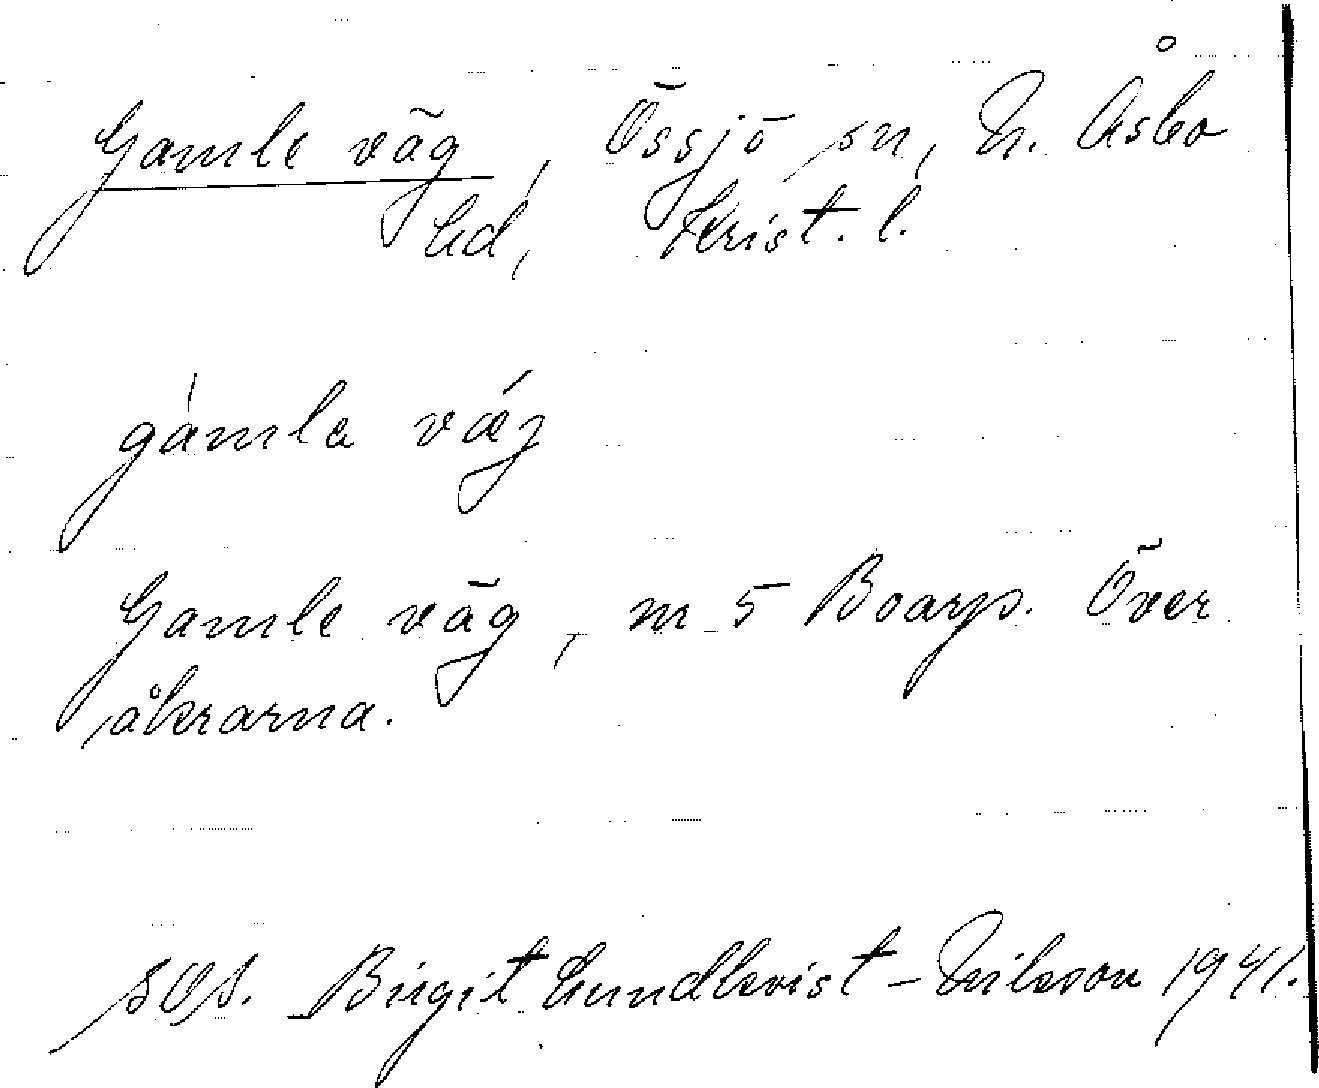 Gamle väg, Össjö sn, N. Åsbo
hd, Krist. l.
gámla váj
Gamle väg, m 5 Boarp. Över
åkrarna.
Birgit Lundkvist-Nilsson 1941.